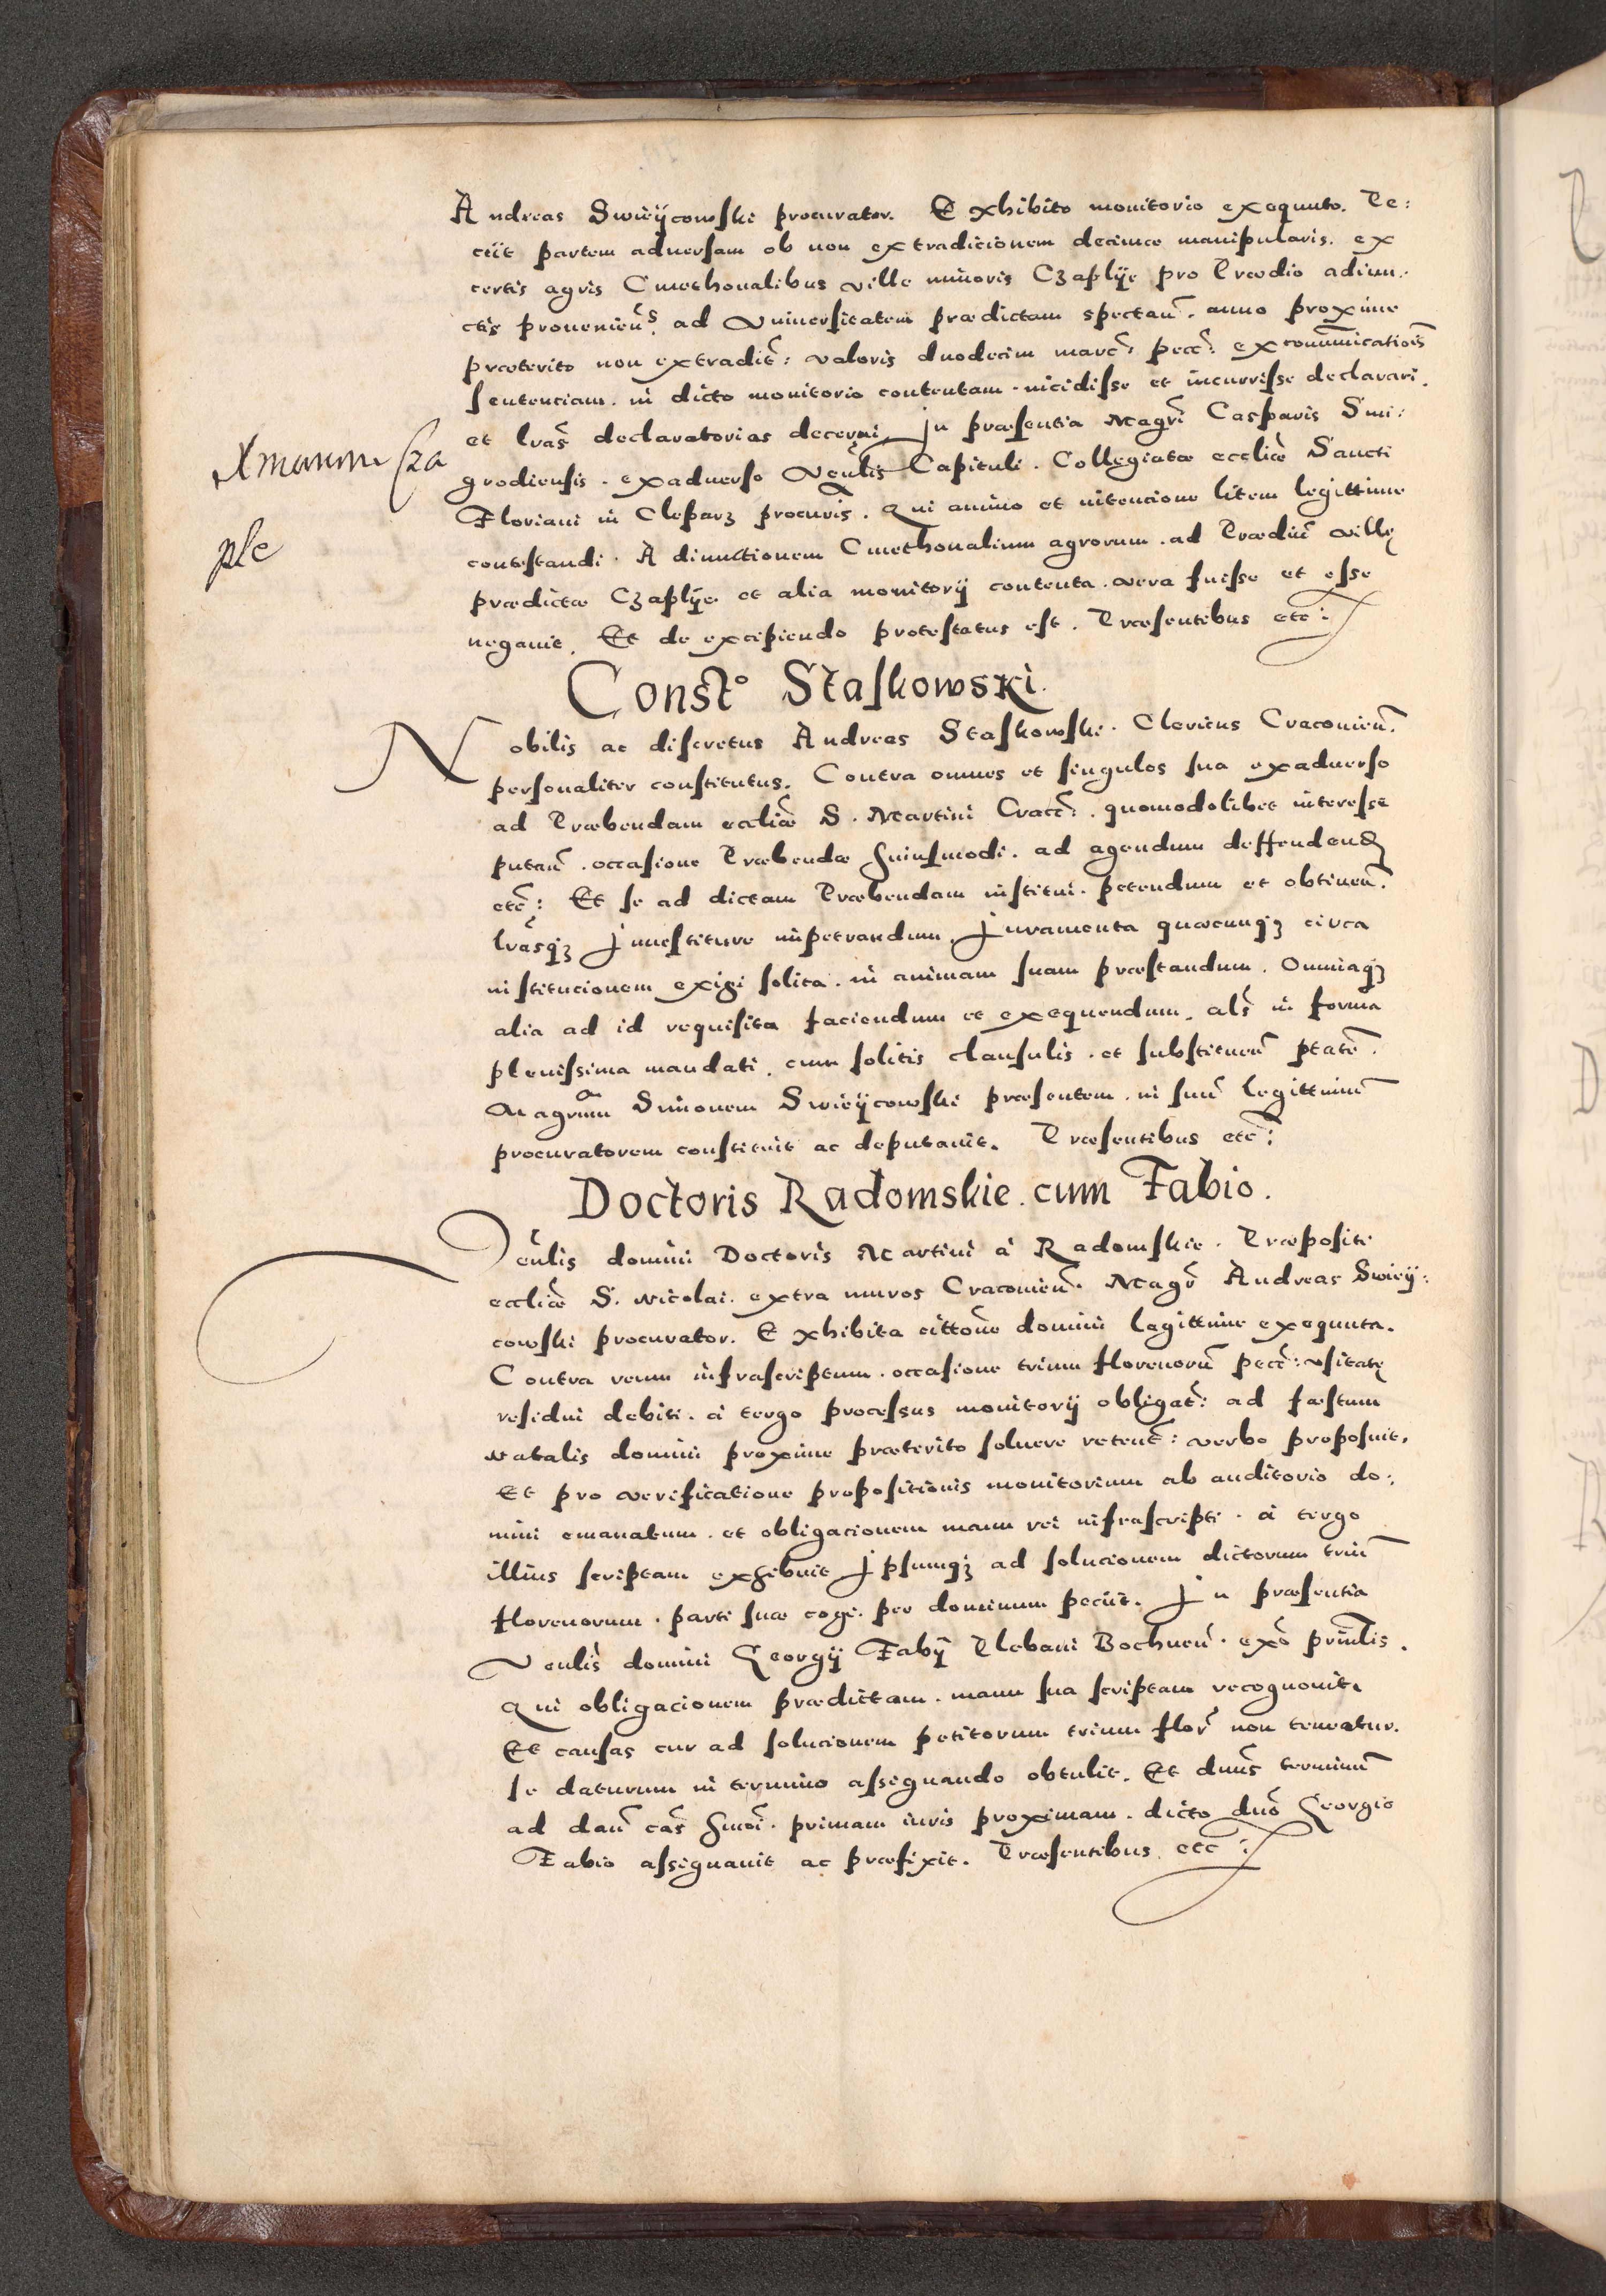 Andreas Swieÿcowski procurator. Exhibito monitorio exequuto. Pe:
ciit partem adversam ob non extradicionem decimæ manipularis. ex
certis agris Cmethonalibus ville minoris Czaplÿe pro Prædio adiun:
ctis provenieñs. ad Universitatem prædictam spectañ. anno proxime
præterito non extradit̃: valoris duodecim marc̃: pecc̃: excommunicatiois̃
sentenciam. in dicto monitorio contentam. incidisse et incurrisse declarari.
et lrãs declaratorias decerni, In præsentia Magrĩ Casparis Smi:
grodiensis. exadverso Veñlis Capituli. Collegiatæ eccliæ̃ Sancti
Floriani in Cleparz procuris̃. qui animo et intencione litem legittime
contestandi. Adiunctionem Cmethonalium agrorum. ad Prædiũ villę
prædictæ Czaplÿe et alia monitorÿ contenta. vera fuisse et esse
negavit. Et de excipiendo protestatus est. Præsentibus etc̃:
Xmamm Cza
ple
Constᵒ Staskowski.
Nobilis ac discretus Andreas Staskowski. Clericus Cracovieñ.
personaliter constitutus. Contra omnes et singulos sua exadverso
ad Præbendam eccliæ̃ S. Martini Cracc̃: quomodolibet interesse
putañ. occasione Præbendæ huiusmodi. ad agendum deffendend
etc̃: Et se ad dictam Præbendam institui. petendum et obtineñ.
lrãsqz Investituræ impetrandum. Juramenta quæcunqz circa
institucionem exigi solita. in animam suam præstandum. Omniaqz
alia ad id requisita faciendum et exequendum. als̃ in forma
plenissima mandati. cum solitis clausulis. et substitueñ ptatẽ.
Magrum Simonem Swieÿcowski præsentem. in suũ legittimũ
procuratorem constituit ac deputavit. Præsentibus etc̃:
Doctoris Radomskie. cum Fabio.
Veñlis domini Doctoris Martini à Radomskie. Præpositi
eccliæ̃ S. Nicolai. extra muros Cracovieñ. Magr̃ Andreas Swieÿ:
cowski procurator. Exhibita cittone domini legittime exequuta.
Contra reum infrascriptum. occasione trium florenorũ pecc̃: usitatę
residui debiti. à tergo processus monitorÿ obligat̃: ad fæstum
Natalis domini proxime præterito solvere retent̃: verbo proposuit.
Et pro verificatione propositionis monitorium ab auditorio do:
mini emanatum. et obligacionem manu rei infrascripti. à tergo
illius scriptam exhibuit Ipsumqz ad solucionem dictorum triũ
florenorum. parti suæ cogi. per dominum peciit. In præsentia
Veñlis domini Georgÿ Fabÿ Plebani Bochneñ. exõ prinlis̃.
Qui obligacionem prædictam. manu sua scriptam recognovit.
Et causas cur ad solucionem petitorum trium flor̃ non teneatur.
se daturum in termino assignando obtulit. Et dnũs terminũ
ad dañ cas̃ hmõi. primam iuris proximam. dicto dnõ Georgio
Fabio assignavit ac præfixit. Præsentibus etc̃: